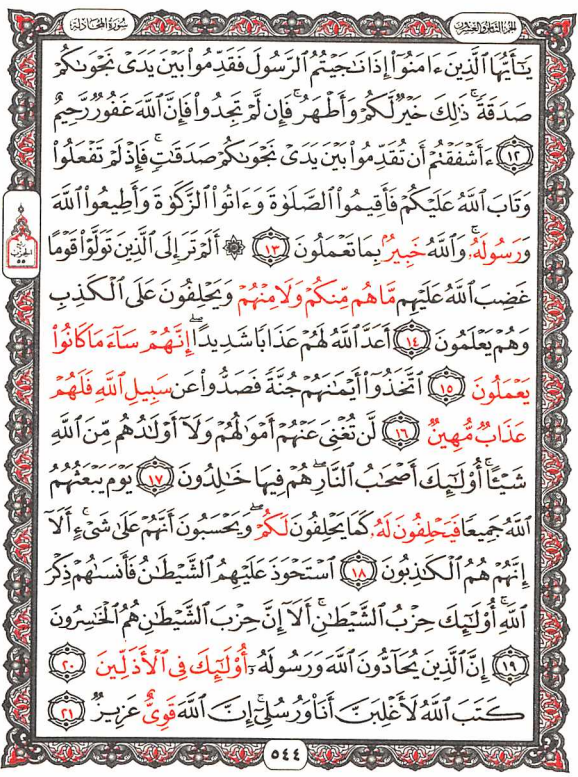 سُورَةُ المُجَادلَة
الجزء الثامن والعشرون
يَـٰٓأَيُّهَا ٱلَّذِينَ ءَامَنُوٓا۟ إِذَا نَـٰجَيْتُمُ ٱلرَّسُولَ فَقَدِّمُوا۟ بَيْنَ يَدَىْ نَجْوَىٰكُمْ
صَدَقَةًۚ ذَٰلِكَ خَيْرٌ لَّكُمْ وَأَطْهَرُۚ فَإِن لَّمْ تَجِدُوا۟ فَإِنَّ ٱللَّهَ غَفُورٌ رَّحِيمٌ
﴿١٢﴾ ءَأَشْفَقْتُمْ أَن تُقَدِّمُوا۟ بَيْنَ يَدَىْ نَجْوَىٰكُمْ صَدَقَـٰتٍۚ فَإِذْ لَمْ تَفْعَلُوا۟
وَتَابَ ٱللَّهُ عَلَيْكُمْ فَأَقِيمُوا۟ ٱلصَّلَوٰةَ وَءَاتُوا۟ ٱلزَّكَوٰةَ وَأَطِيعُوا۟ ٱللَّهَ
وَرَسُولَهُۥۚ وَٱللَّهُ خَبِيرٌۢ بِمَا تَعْمَلُونَ ﴿١٣﴾ ۞ أَلَمْ تَرَ إِلَى ٱلَّذِينَ تَوَلَّوْا۟ قَوْمًا
غَضِبَ ٱللَّهُ عَلَيْهِم مَّا هُم مِّنكُمْ وَلَا مِنْهُمْ وَيَحْلِفُونَ عَلَى ٱلْكَذِبِ
وَهُمْ يَعْلَمُونَ ﴿١٤﴾ أَعَدَّ ٱللَّهُ لَهُمْ عَذَابًا شَدِيدًاۖ إِنَّهُمْ سَآءَ مَا كَانُوا۟
يَعْمَلُونَ ﴿١٥﴾ ٱتَّخَذُوٓا۟ أَيْمَـٰنَهُمْ جُنَّةً فَصَدُّوا۟ عَن سَبِيلِ ٱللَّهِ فَلَهُمْ
عَذَابٌ مُّهِينٌ ﴿١٦﴾ لَّن تُغْنِىَ عَنْهُمْ أَمْوَٰلُهُمْ وَلَآ أَوْلَـٰدُهُم مِّنَ ٱللَّهِ
شَيْـًٔاۚ أُو۟لَـٰٓئِكَ أَصْحَـٰبُ ٱلنَّارِۖ هُمْ فِيهَا خَـٰلِدُونَ ﴿١٧﴾ يَوْمَ يَبْعَثُهُمُ
ٱللَّهُ جَمِيعًا فَيَحْلِفُونَ لَهُۥ كَمَا يَحْلِفُونَ لَكُمْۖ وَيَحْسَبُونَ أَنَّهُمْ عَلَىٰ شَىْءٍۚ أَلَآ
إِنَّهُمْ هُمُ ٱلْكَـٰذِبُونَ ﴿١٨﴾ ٱسْتَحْوَذَ عَلَيْهِمُ ٱلشَّيْطَـٰنُ فَأَنسَىٰهُمْ ذِكْرَ
ٱللَّهِۚ أُو۟لَـٰٓئِكَ حِزْبُ ٱلشَّيْطَـٰنِۚ أَلَآ إِنَّ حِزْبَ ٱلشَّيْطَـٰنِ هُمُ ٱلْخَـٰسِرُونَ
﴿١٩﴾ إِنَّ ٱلَّذِينَ يُحَآدُّونَ ٱللَّهَ وَرَسُولَهُۥٓ أُو۟لَـٰٓئِكَ فِى ٱلْأَذَلِّينَ ﴿٢٠﴾
كَتَبَ ٱللَّهُ لَأَغْلِبَنَّ أَنَا۠ وَرُسُلِىٓۚ إِنَّ ٱللَّهَ قَوِىٌّ عَزِيزٌ ﴿٢١﴾
٥٤٤